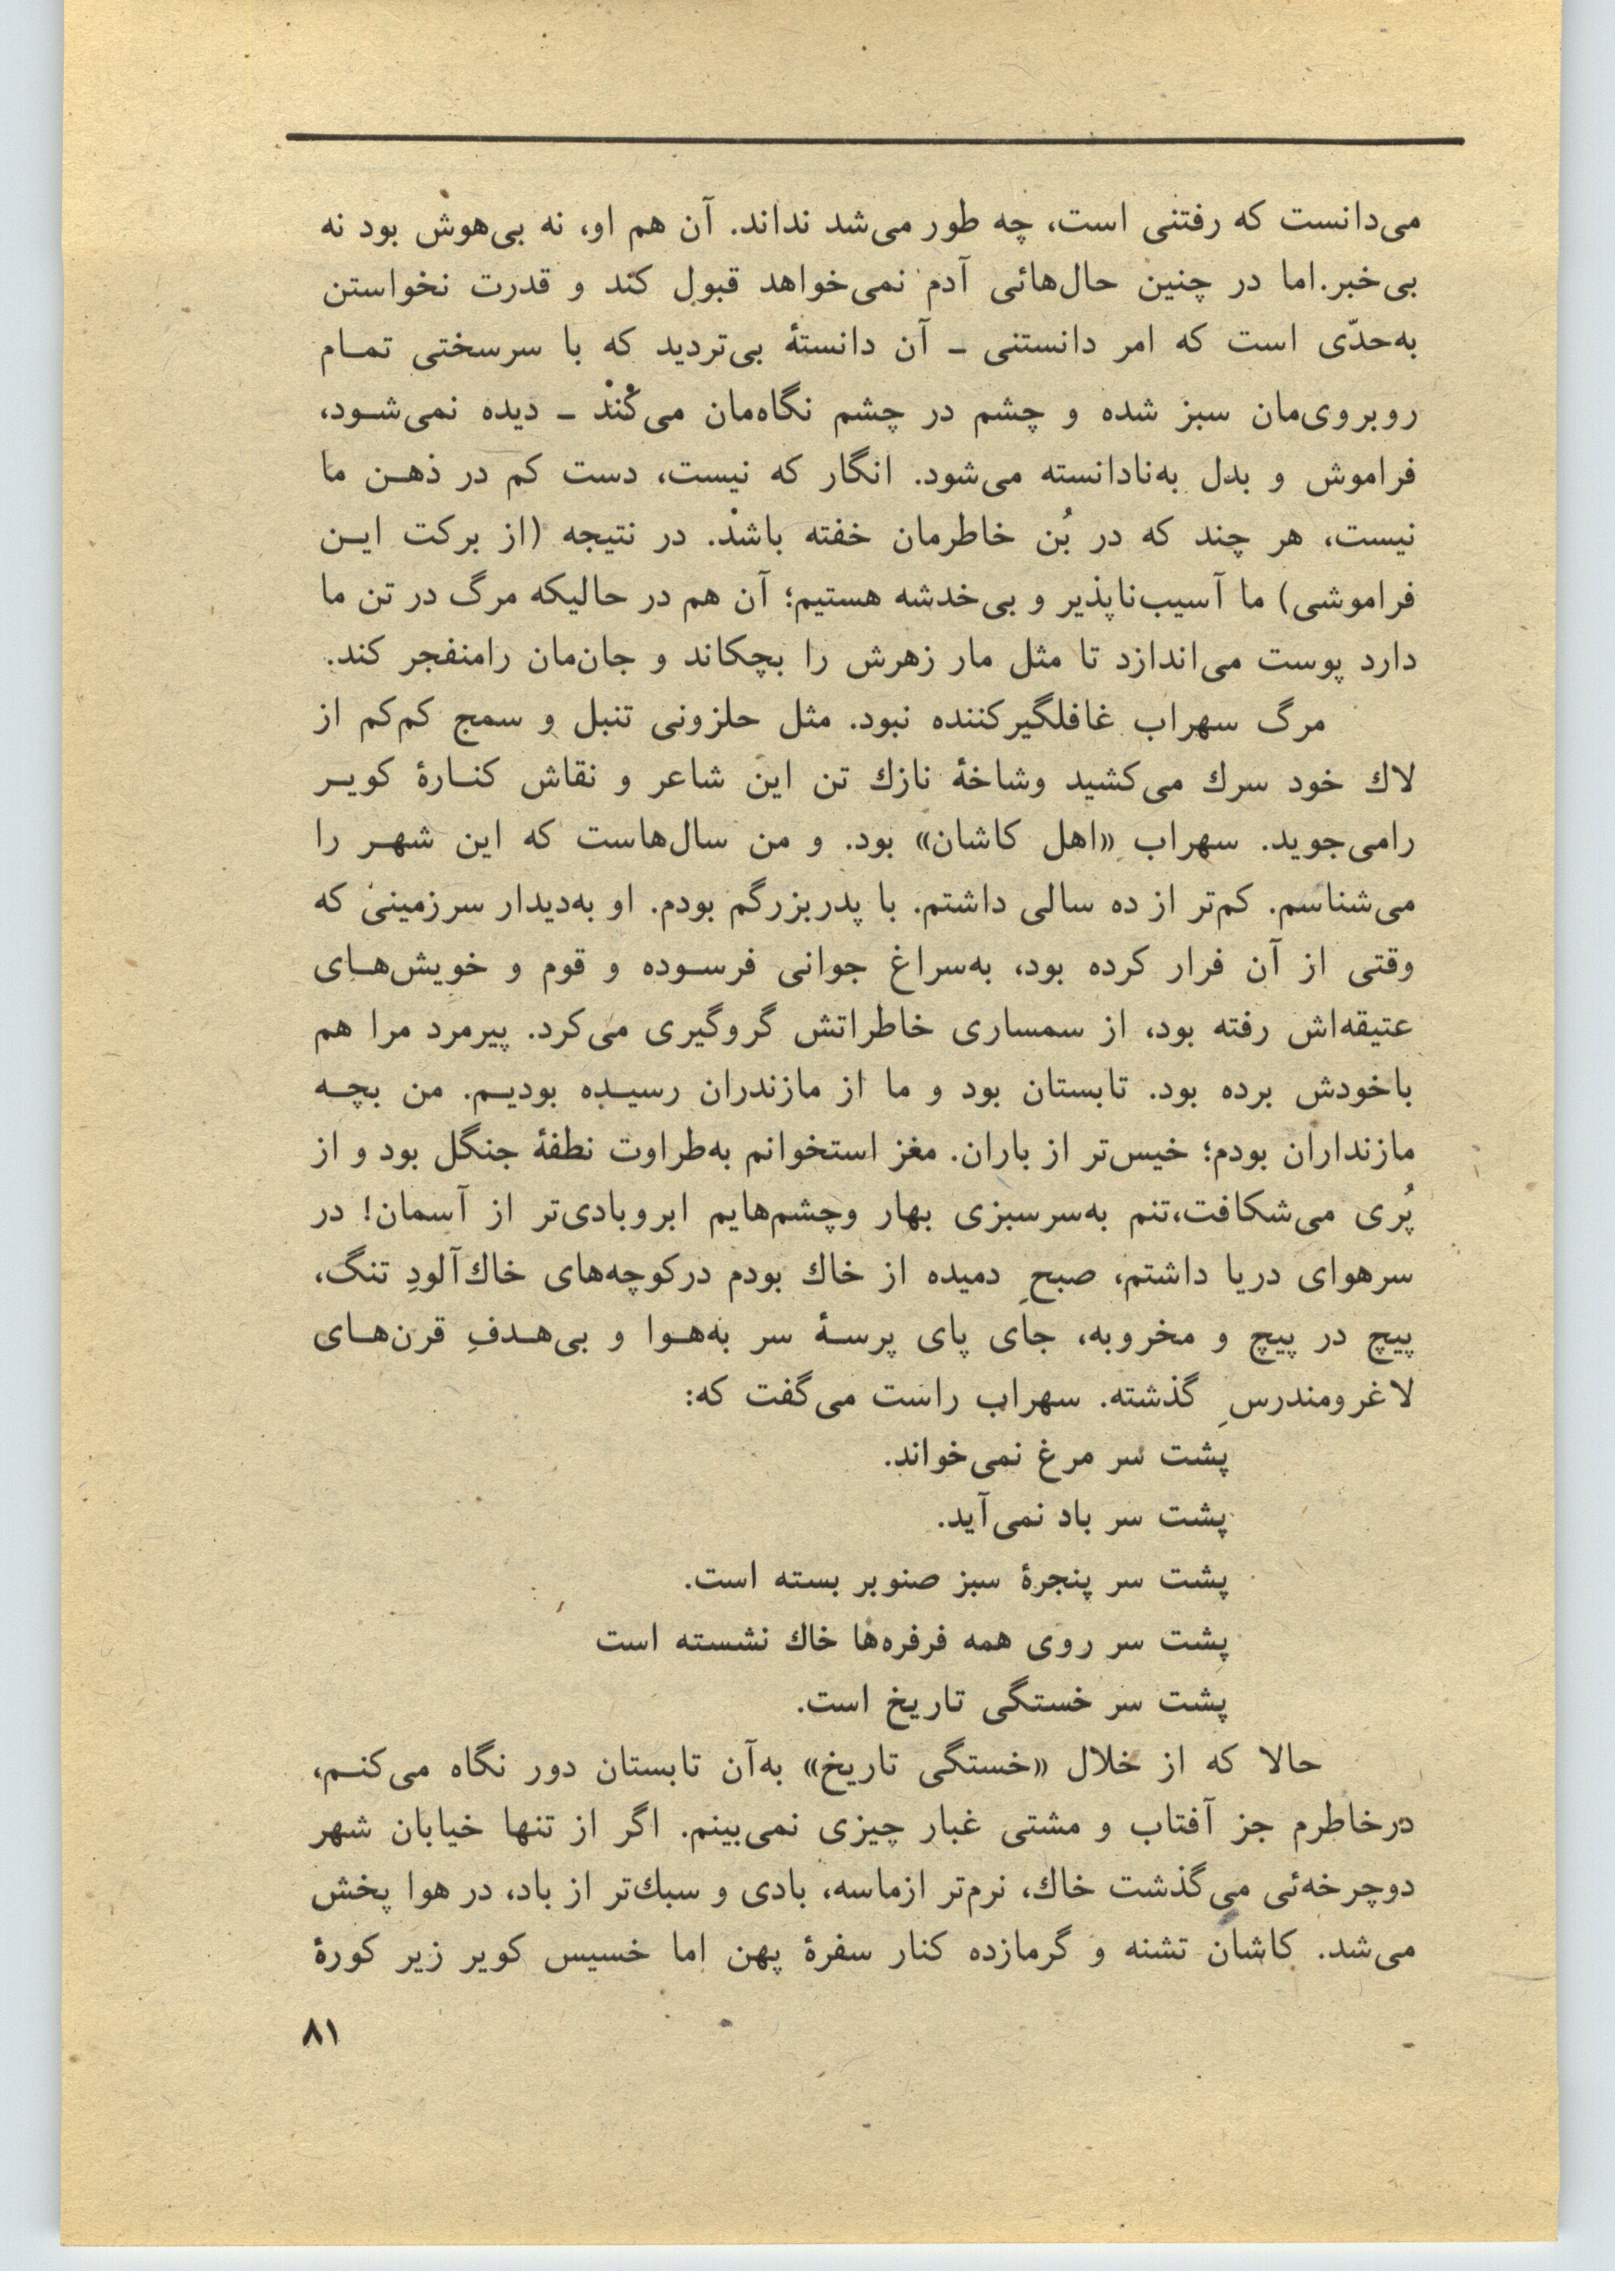 می‌دانست که رفتنی است، چه طور می‌شد نداند. آن هم او، نه بی‌هوش بود نه
بی‌خبر.اما در چنین حال‌هائی آدم نمی‌خواهد قبول کند و قدرت نخواستن
به‌حدّی است که امر دانستنی ـ آن دانستهٔ بی‌تردید که با سرسختی تمـام
روبروی‌مان سبز شده و چشم در چشم نگاه‌مان می‌کُند ـ دیده نمی‌شـود،
فراموش و بدل به‌نادانسته می‌شود. انگار که نیست، دست کم در ذهـن ما
نیست، هر چند که در بُن خاطرمان خفته باشد. در نتیجه (از برکت ایـن
فراموشی) ما آسیب‌ناپذیر و بی‌خدشه هستیم؛ آن هم در حالیکه مرگ در تن ما
دارد پوست می‌اندازد تا مثل مار زهرش را بچکاند و جان‌مان رامنفجر کند.
مرگ سهراب غافلگیرکننده نبود. مثل حلزونی تنبل و سمج کم‌کم از
لاك خود سرك می‌کشید وشاخهٔ نازك تن این شاعر و نقاش کنـارهٔ کویـر
رامی‌جوید. سهراب «اهل کاشان» بود. و من سال‌هاست که این شهـر را
می‌شناسم. کم‌تر از ده سالی داشتم. با پدربزرگم بودم. او به‌دیدار سرزمینی که
وقتی از آن فرار کرده بود، به‌سراغ جوانی فرسـوده و قوم و خویش‌هـای
عتیقه‌اش رفته بود، از سمساری خاطراتش گروگیری می‌کرد. پیرمرد مرا هم
باخودش برده بود. تابستان بود و ما از مازندران رسیـده بودیـم. من بچـه
مازنداران بودم؛ خیس‌تر از باران. مغز استخوانم به‌طراوت نطفهٔ جنگل بود و از
پُری می‌شکافت،تنم به‌سرسبزی بهار وچشم‌هایم ابروبادی‌تر از آسمان! در
سرهوای دریا داشتم، صبحِ دمیده از خاك بودم درکوچه‌های خاك‌آلودِ تنگ،
پیچ در پیچ و مخروبه، جای پای پرسـهٔ سر به‌هـوا و بی‌هـدفِ قرن‌هـای
لاغرومندرسِ گذشته. سهراب راست می‌گفت که:
پشت سر مرغ نمی‌خواند.
پشت سر باد نمی‌آید.
پشت سر پنجرهٔ سبز صنوبر بسته است.
پشت سر روی همه فرفره‌ها خاك نشسته است
پشت سر خستگی تاریخ است.
حالا که از خلال «خستگی تاریخ» به‌آن تابستان دور نگاه می‌کنـم،
درخاطرم جز آفتاب و مشتی غبار چیزی نمی‌بینم. اگر از تنها خیابان شهر
دوچرخه‌ئی می‌گذشت خاك، نرم‌تر ازماسه، بادی و سبك‌تر از باد، در هوا پخش
می‌شد. کاشان تشنه و گرمازده کنار سفرهٔ پهن اما خسیس کویر زیر کورهٔ
۸۱